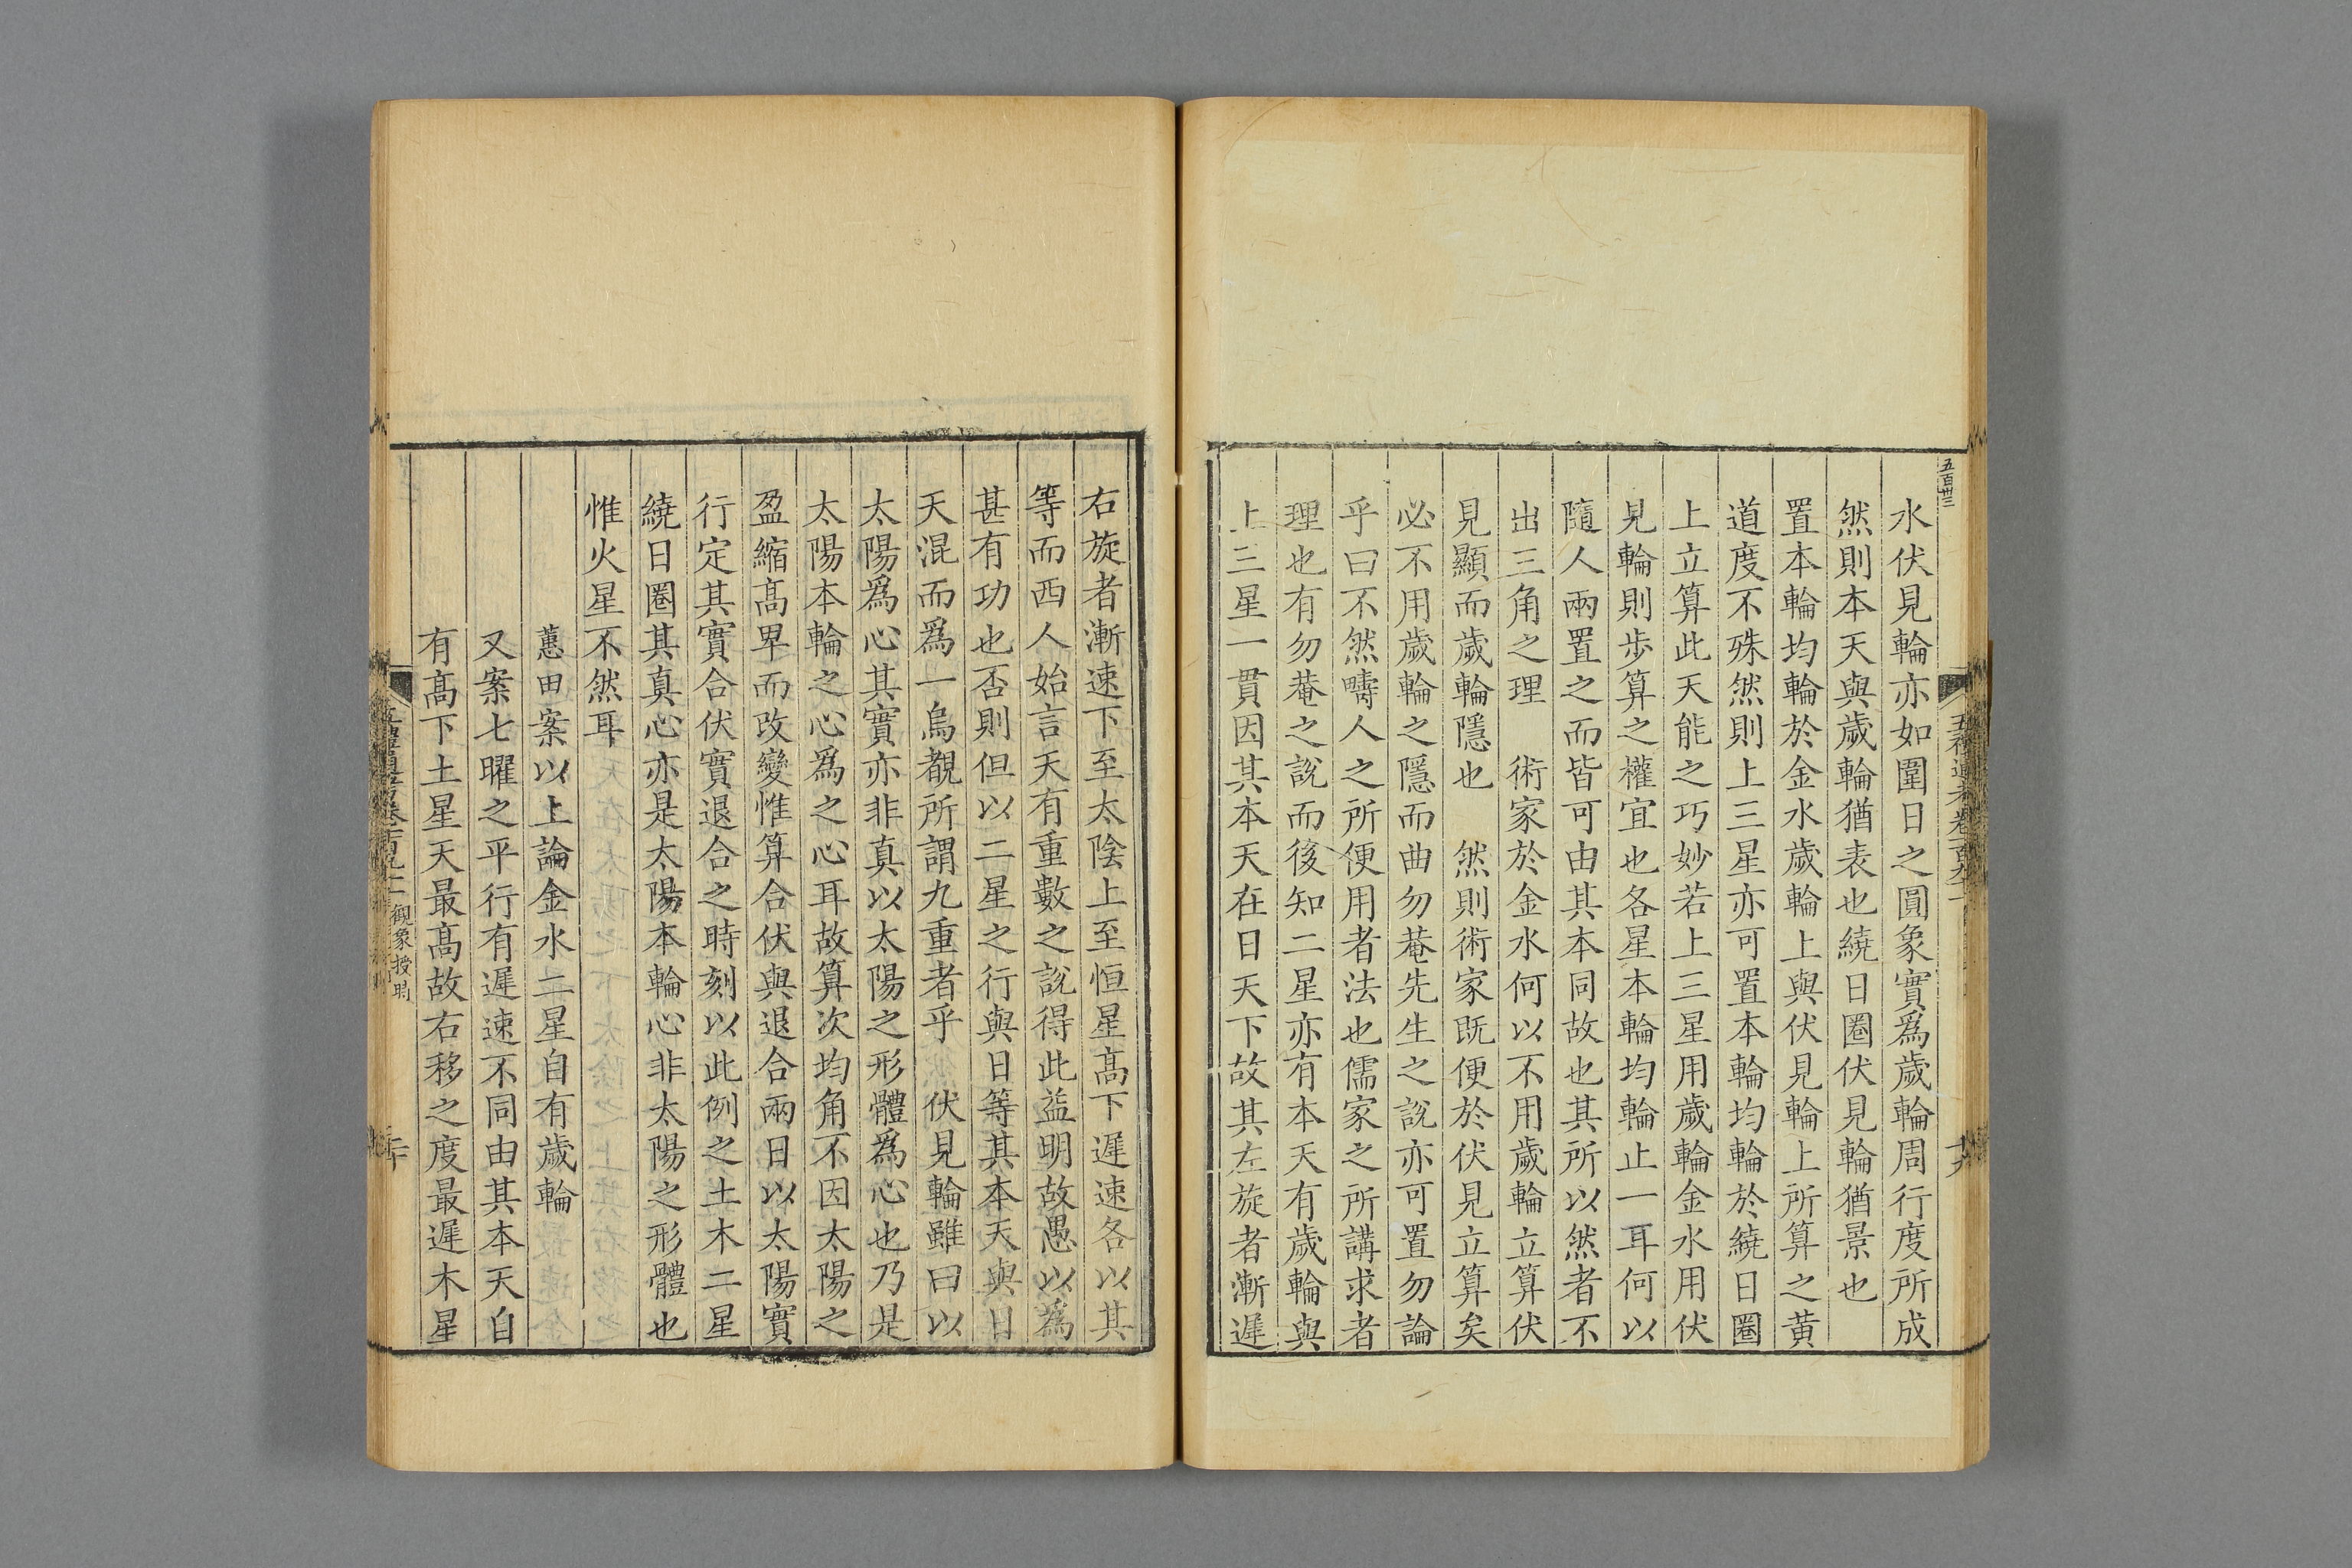 五百卅三
水伏見輪亦如圍日之圓象實爲歲輪周行度所成
然則本天與歲輪猶表也繞日圈伏見輪猶景也
置本輪均輪於金水歲輪上與伏見輪上所算之黄
道度不殊然則上三星亦可置本輪均輪於繞日圈
上立算此天能之巧妙若上三星用歲輪金水用伏
見輪則步算之權宜也各星本輪均輪止一耳何以
隨人兩置之而皆可由其本同故也其所以然者不
出三角之理　術家於金水何以不用歲輪立算伏
見顯而歲輪隱也　然則術家既便於伏見立算矣
必不用歲輪之隱而曲勿菴先生之說亦可置勿論
乎曰不然疇人之所便用者法也儒家之所講求者
理也有勿菴之說而後知二星亦有本天有歲輪與
上三星一貫因其本天在日天下故其左旋者漸遲
右旋者漸速下至太陰上至恒星髙下遲速各以其
等而西人始言天有重數之說得此益明故愚以為
甚有功也否則但以二星之行與日等其本天與日
天混而爲一烏覩所謂九重者乎　伏見輪雖曰以
太陽爲心其實亦非真以太陽之形體爲心也乃是
太陽本輪之心爲之心耳故算次均角不因太陽之
盈縮髙卑而改變惟算合伏與退合兩日以太陽實
行定其實合伏實退合之時刻以此例之土木二星
繞日圈其真心亦是太陽本輪心非太陽之形體也
惟火星不然耳
蕙田案以上論金水二星自有歲輪
又案七曜之平行有遲速不同由其本天自
有髙下土星天最髙故右移之度最遲木星
觀象授時